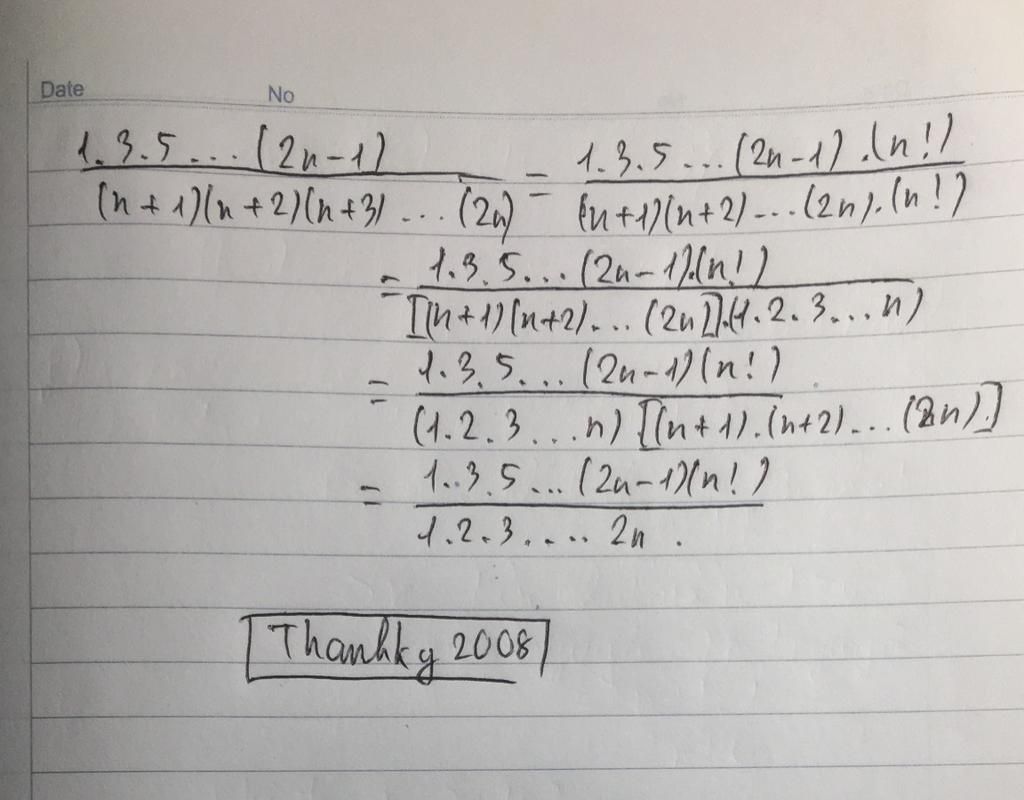 Date No
1.3.5...(2n-1) / (n+1)(n+2)(n+3)...(2n) = 1.3.5...(2n-1).(n!) / (n+1)(n+2)...(2n).(n!)
= 1.3.5...(2n-1).(n!) / [(n+1)(n+2)...(2n)].(1.2.3...n)
= 1.3.5...(2n-1)(n!) / (1.2.3...n)[(n+1).(n+2)...(2n).]
= 1.3.5...(2n-1)(n!) / 1.2.3.... 2n.
Thanhky 2008